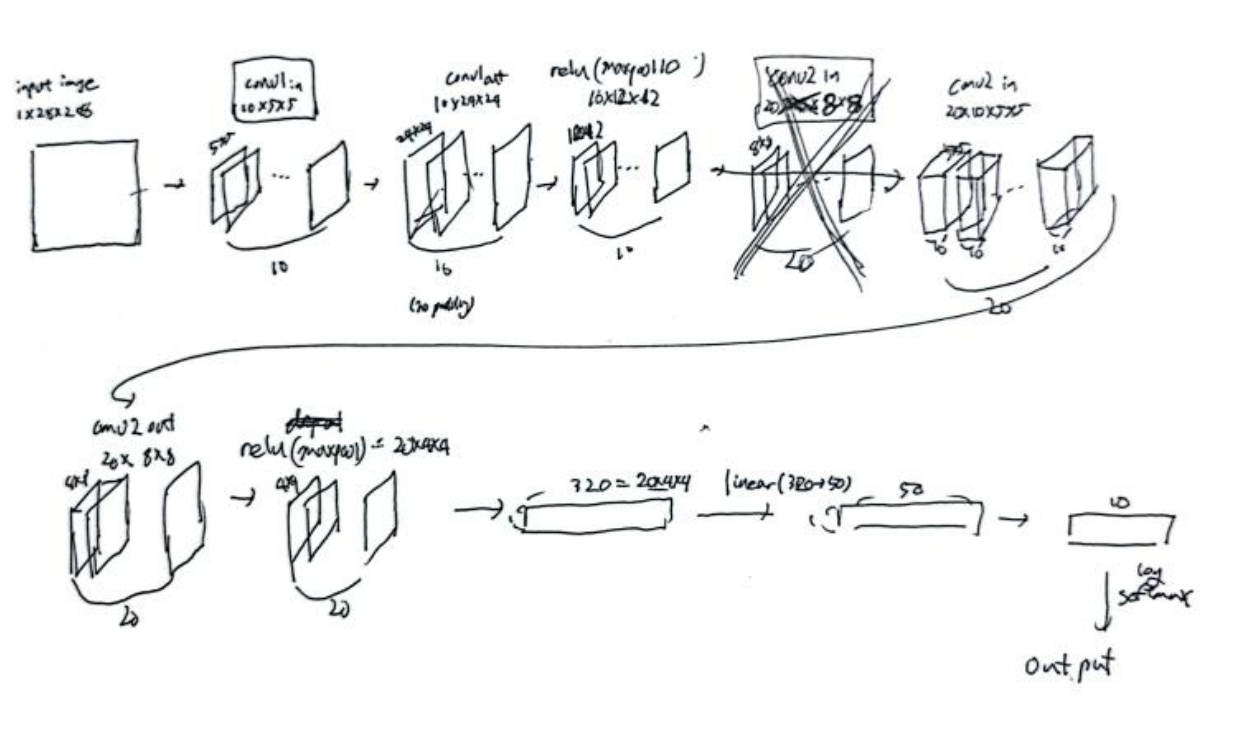 input image
1x28x28
conv1 in
10x5x5
5x5
10
conv1 out
10x24x24
24x24
10
(no padding)
relu(maxpool10)
10x12x12
12x12
10
conv2 in
8x8
8x8
10
conv2 in
20x10x5x5
5x5
10
10
10
20
conv2 out
20x 8x8
8x8
20
relu(maxpool) = 20x4x4
4x4
20
320 = 20x4x4
linear(320→50)
50
10
log
softmax
output